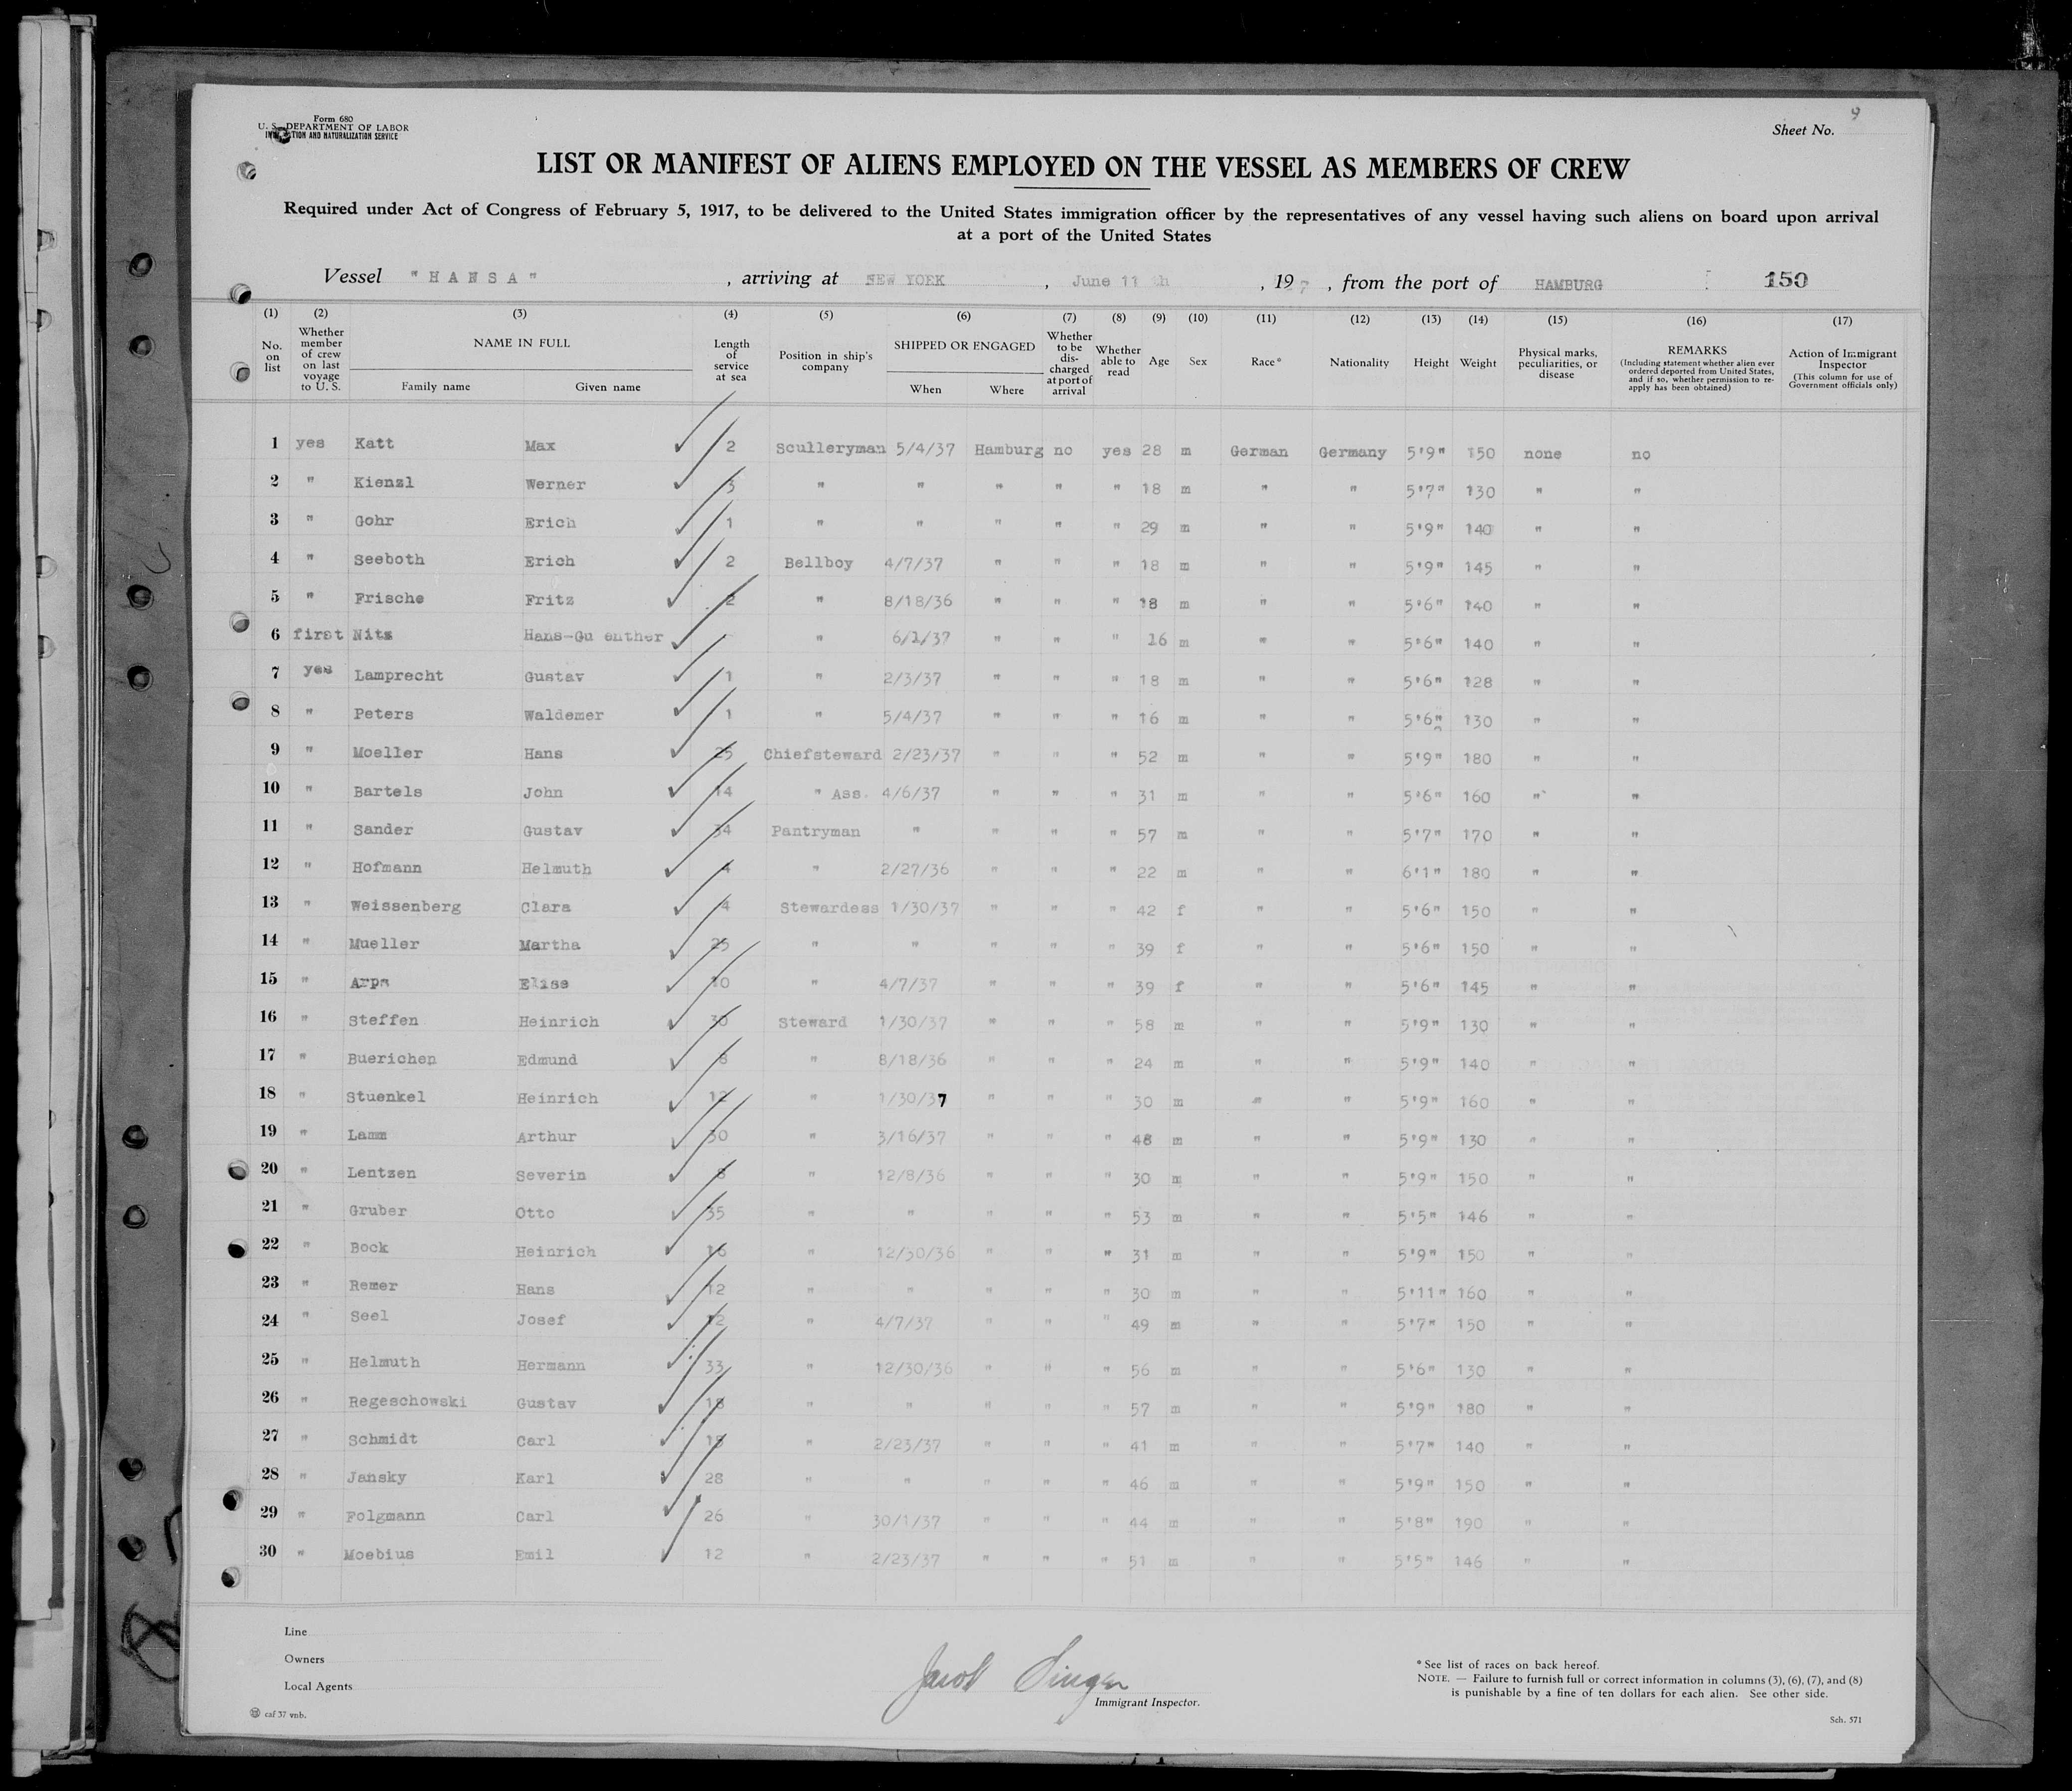 Form 680
U. S. DEPARTMENT OF LABOR
IMMIGRATION AND NATURALIZATION SERVICE
Sheet No. 9
LIST OR MANIFEST OF ALIENS EMPLOYED ON THE VESSEL AS MEMBERS OF CREW
Required under Act of Congress of February 5, 1917, to be delivered to the United States immigration officer by the representatives of any vessel having such aliens on board upon arrival
at a port of the United States
Vessel "HANSA", arriving at NEW YORK, June 11 th, 19 7, from the port of HAMBURG 150
(1) (2) (3) (4) (5) (6) (7) (8) (9) (10) (11) (12) (13) (14) (15) (16) (17)
No. on list Whether member of crew on last voyage to U. S. NAME IN FULL Family name Given name Length of service at sea Position in ship's company SHIPPED OR ENGAGED When Where Whether to be discharged at port of arrival Whether able to read Age Sex Race* Nationality Height Weight Physical marks, peculiarities, or disease REMARKS (Including statement whether alien ever ordered deported from United States, and if so, whether permission to reapply has been obtained) Action of Immigrant Inspector (This column for use of Government officials only)
1 yes Katt Max 2 Sculleryman 5/4/37 Hamburg no yes 28 m German Germany 5'9" 150 none no
2 " Kienzl Werner 3 " " " " " 18 m " " 5'7" 130 " "
3 " Gohr Erich 1 " " " " " 29 m " " 5'9" 140 " "
4 " Seeboth Erich 2 Bellboy 4/7/37 " " " 18 m " " 5'9" 145 " "
5 " Frische Fritz 2 " 8/18/36 " " " 18 m " " 5'6" 140 " "
6 first Nitz Hans-Gu enther - " 6/1/37 " " " 16 m " " 5'6" 140 " "
7 yes Lamprecht Gustav 1 " 2/3/37 " " " 18 m " " 5'6" 128 " "
8 " Peters Waldemer 1 " 5/4/37 " " " 16 m " " 5'6" 130 " "
9 " Moeller Hans 25 Chiefsteward 2/23/37 " " " 52 m " " 5'9" 180 " "
10 " Bartels John 14 " Ass. 4/6/37 " " " 31 m " " 5'6" 160 " "
11 " Sander Gustav 34 Pantryman " " " " 57 m " " 5'7" 170 " "
12 " Hofmann Helmuth 4 " 2/27/36 " " " 22 m " " 6'1" 180 " "
13 " Weissenberg Clara 4 Stewardess 1/30/37 " " " 42 f " " 5'6" 150 " "
14 " Mueller Martha 25 " " " " " 39 f " " 5'6" 150 " "
15 " Arps Elise 10 " 4/7/37 " " " 39 f " " 5'6" 145 " "
16 " Steffen Heinrich 30 Steward 1/30/37 " " " 58 m " " 5'9" 130 " "
17 " Buerichen Edmund 8 " 8/18/36 " " " 24 m " " 5'9" 140 " "
18 " Stuenkel Heinrich 12 " 1/30/37 " " " 30 m " " 5'9" 160 " "
19 " Lamm Arthur 30 " 3/16/37 " " " 48 m " " 5'9" 130 " "
20 " Lentzen Severin 8 " 12/8/36 " " " 30 m " " 5'9" 150 " "
21 " Gruber Otto 35 " " " " " 53 m " " 5'5" 146 " "
22 " Bock Heinrich 16 " 12/30/36 " " " 31 m " " 5'9" 150 " "
23 " Remer Hans 12 " " " " " 30 m " " 5'11" 160 " "
24 " Seel Josef 12 " 4/7/37 " " " 49 m " " 5'7" 150 " "
25 " Helmuth Hermann 33 " 12/30/36 " " " 56 m " " 5'6" 130 " "
26 " Regeschowski Gustav 18 " " " " " 57 m " " 5'9" 180 " "
27 " Schmidt Carl 18 " 2/23/37 " " " 41 m " " 5'7" 140 " "
28 " Jansky Karl 28 " " " " " 46 m " " 5'9" 150 " "
29 " Folgmann Carl 26 " 30/1/37 " " " 44 m " " 5'8" 190 " "
30 " Moebius Emil 12 " 2/23/37 " " " 51 m " " 5'5" 146 " "
Line
Owners
Local Agents
Jacob Singer
Immigrant Inspector.
* See list of races on back hereof.
NOTE. — Failure to furnish full or correct information in columns (3), (6), (7), and (8)
is punishable by a fine of ten dollars for each alien. See other side.
caf 37 vnb.
Sch. 571